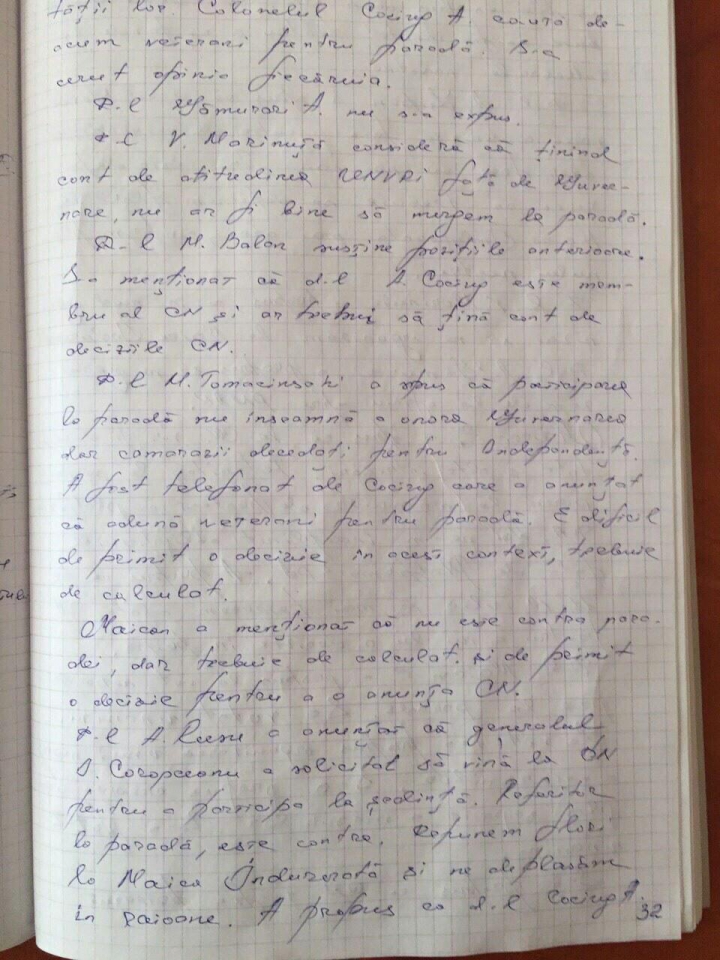 tății lor. Colonelul Cociug A. caută de-
acum veterani pentru paradă. S-a
cerut opinia fiecăruia.
D-l A. nu s-a expus.
D-l V. Marinuță consideră că ținînd
cont de atitudinea UNVRI față de Guver-
nare, nu ar fi bine să mergem la paradă.
D-l M. Balan susține pozițiile anterioare.
S-a menționat că d-l A. Cociug este mem-
bru al CN și ar trebui să țină cont de
deciziile CN.
D-l M. Tomacinschi a spus că participarea
la paradă nu înseamnă a onora Guvernarea
dar camarazii decedați pentru Independență.
A fost telefonat de Cociug care a anunțat
că adună veterani pentru paradă. E dificil
de primit o decizie în acest context, trebuie
de calculat.
a menționat că nu este contra para-
dei, dar trebuie de calculat și de primit
o decizie pentru a o anunța CN.
D-l A. Rusu a anunțat că generalul
I. Coropceanu a solicitat să vină la
pentru a participa la ședință. Referitor
la paradă, este contra. Depunem flori
la Maica Îndurerată și ne deplasăm
în raioane. A propus ca d-l Cociug A.
32